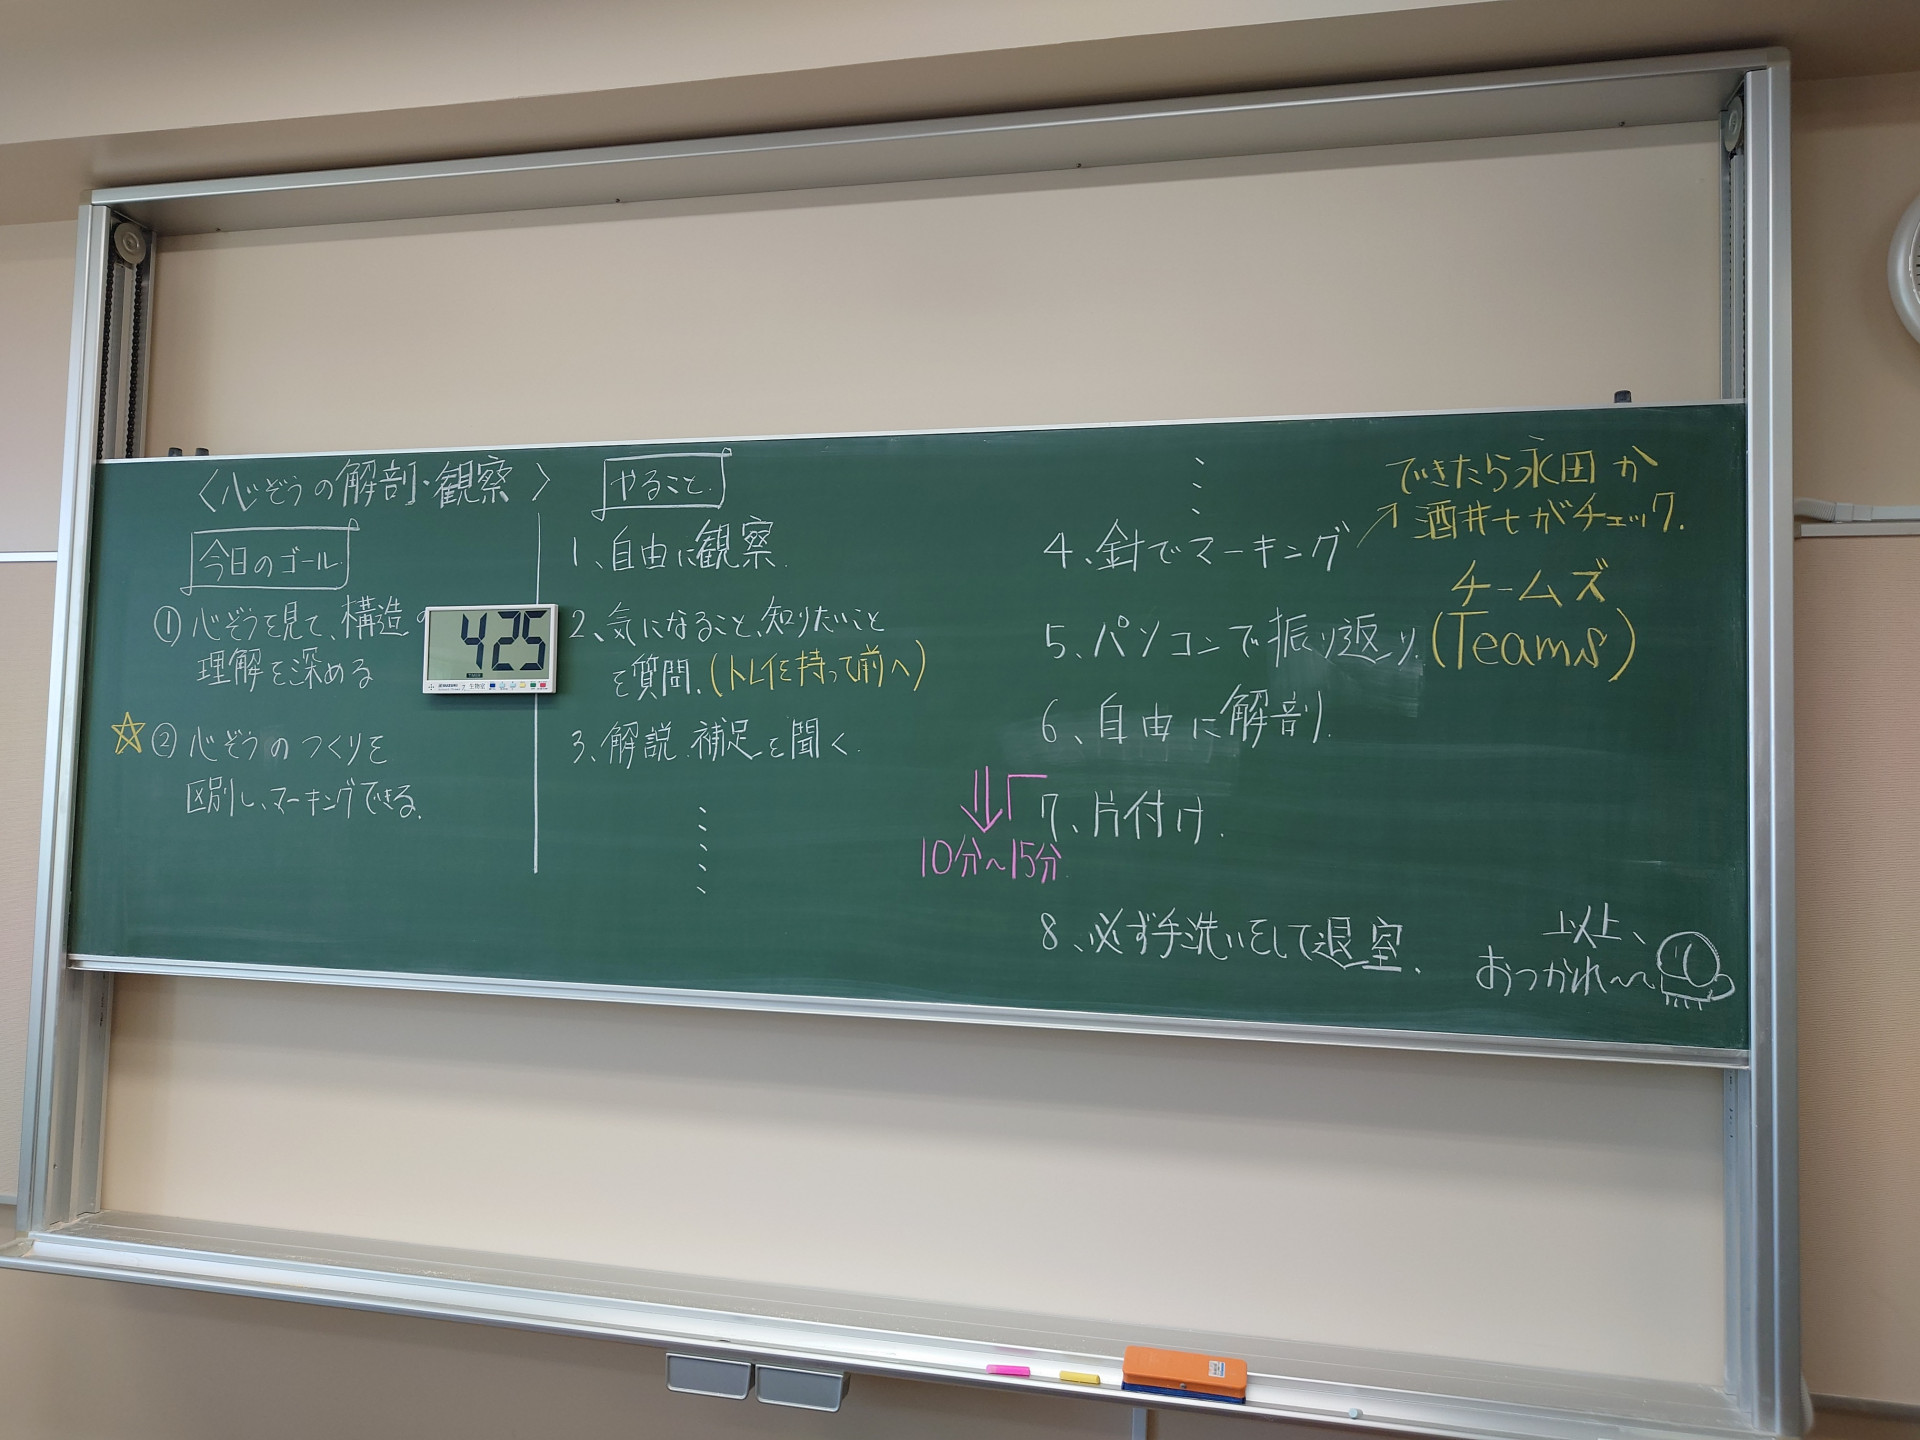 〈心ぞうの解剖・観察〉
今日のゴール
① 心ぞうを見て、構造の
理解を深める
☆② 心ぞうのつくりを
区別し、マーキングできる.
425
やること.
1、自由に観察.
2、気になること、知りたいこと
を質問.(トレイを持って前へ)
3、解説.補足を聞く.
4、針でマーキング
できたら永田か
酒井+がチェック.
5、パソコンで振り返り.
チームズ
(Teams)
6、自由に解剖.
7、片付け.
10分~15分.
8、必ず手洗いをして退室.
以上、
おつかれ~~